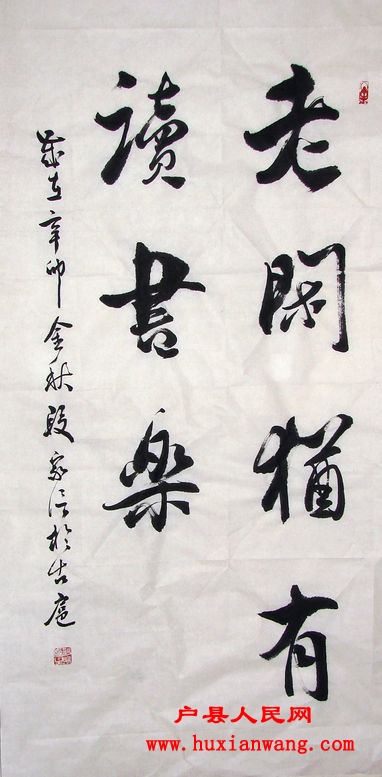 老閑猶有
讀書樂
歲在辛卯金秋段家信於古扈
户县人民网
www.huxianwang.com